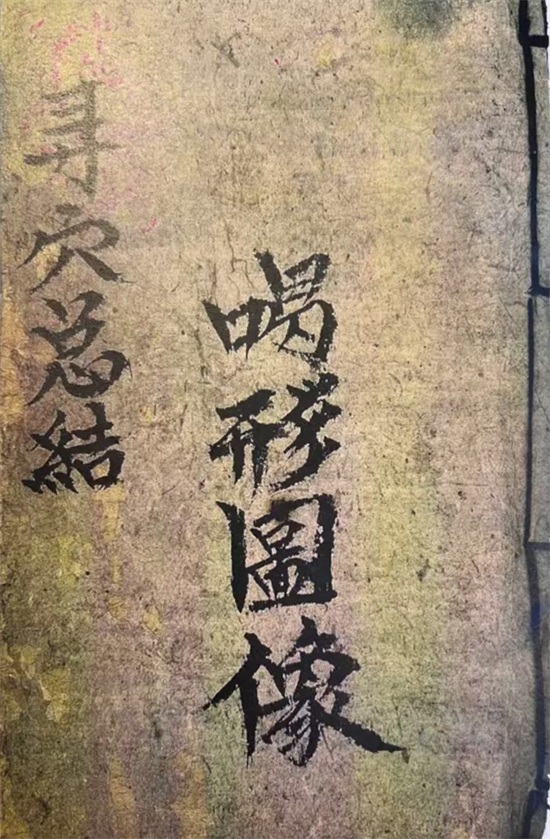 喝形圖像
寻穴总結